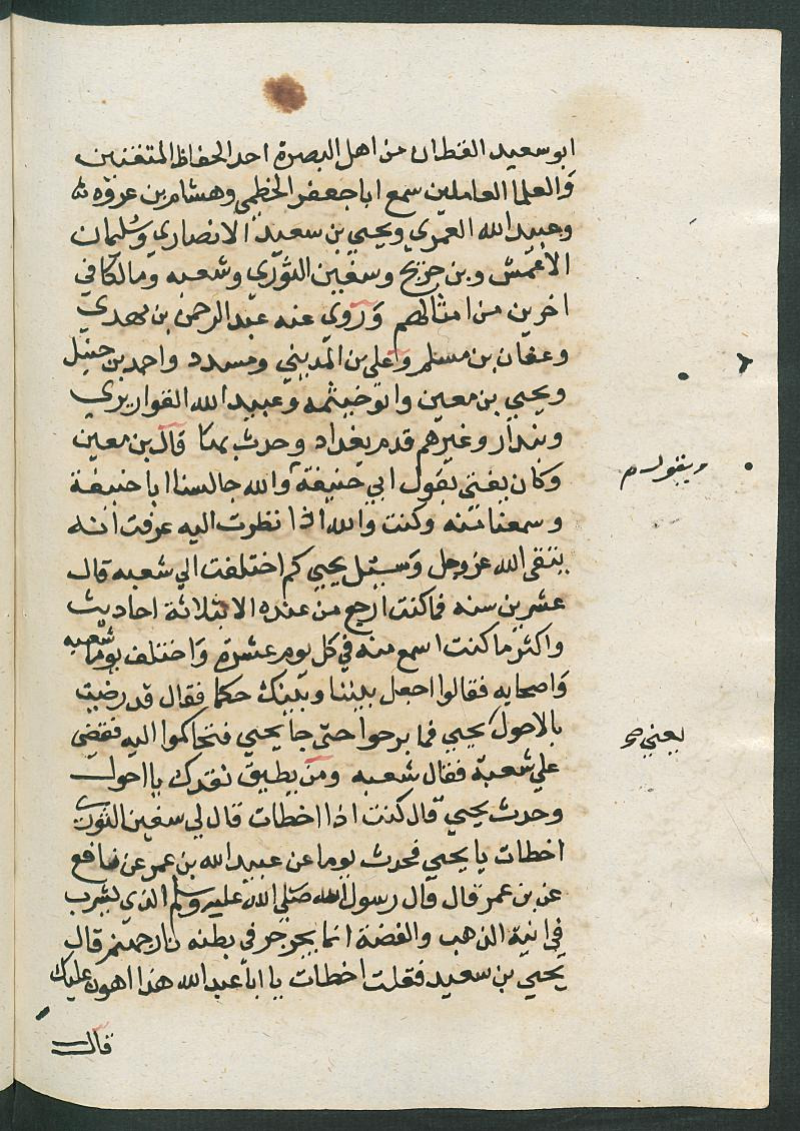 ابو سعيد القطان من اهل البصرة احد الحفاظ المتقنين
والعلما العاملين سمع ابا جعفر الخطمي وهشام بن عروه
وعبيد الله العمري ويحيي بن سعيد الانصاري وسليمان
الاعمش وبن جريج وسفين الثوري وشعبه ومالكا في
اخرين من امثالهم وروي عنه عبد الرحمن بن مهدي
وعفان بن مسلم وعلي بن المديني ومسدد واحمد بن حنبل
ويحيي بن معين وابو خيثمه وعبيد الله القواريري
وبندار وغيرهم قدم بغداد وحدث بها قال بن معين
وكان يفتي بقول ابي حنيفة والله جالسنا ابا حنيفة
وسمعنا منه وكنت والله اذا نظرت اليه عرفت انه
يتقي الله عز وجل وسئل يحيي كم اختلفت الي شعبه قال
عشرين سنه فما كنت ارجع من عنده الا بثلاثة احاديث
واكثر ما كنت اسمع منه في كل يوم عشرة واختلف يوما شعبه
واصحابه فقالوا اجعل بيننا وبينك حكما فقال قد رضيت
بالاحول يحيي فما برحوا حتي جا يحيي فتحاكموا اليه فقضي
علي شعبة فقال شعبه ومن يطيق نقدك يا احول
وحدث يحيي قال كنت اذا اخطات قال لي سفين الثوري
اخطات يا يحيي فحدث يوما عن عبيد الله بن عمر عن نافع
عن بن عمر قال قال رسول الله صلي الله عليه وسلم الذي يشرب
في انية الذهب والفضة انما يجرجر في بطنه نار جهنم قال
يحيي بن سعيد فقلت اخطات يا ابا عبد الله هذا اهون عليك
قال
ويقول
يعني